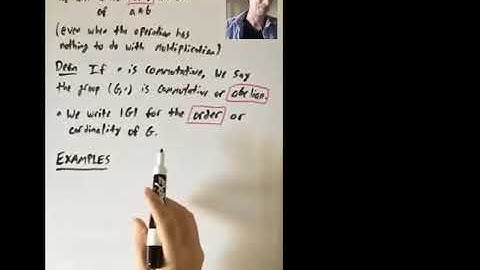 of a*b
(even when the operation has
nothing to do with multiplication)
Defn If * is commutative, we say
the group (G,*) is commutative or abelian.
• We write |G| for the order or
cardinality of G.
EXAMPLES